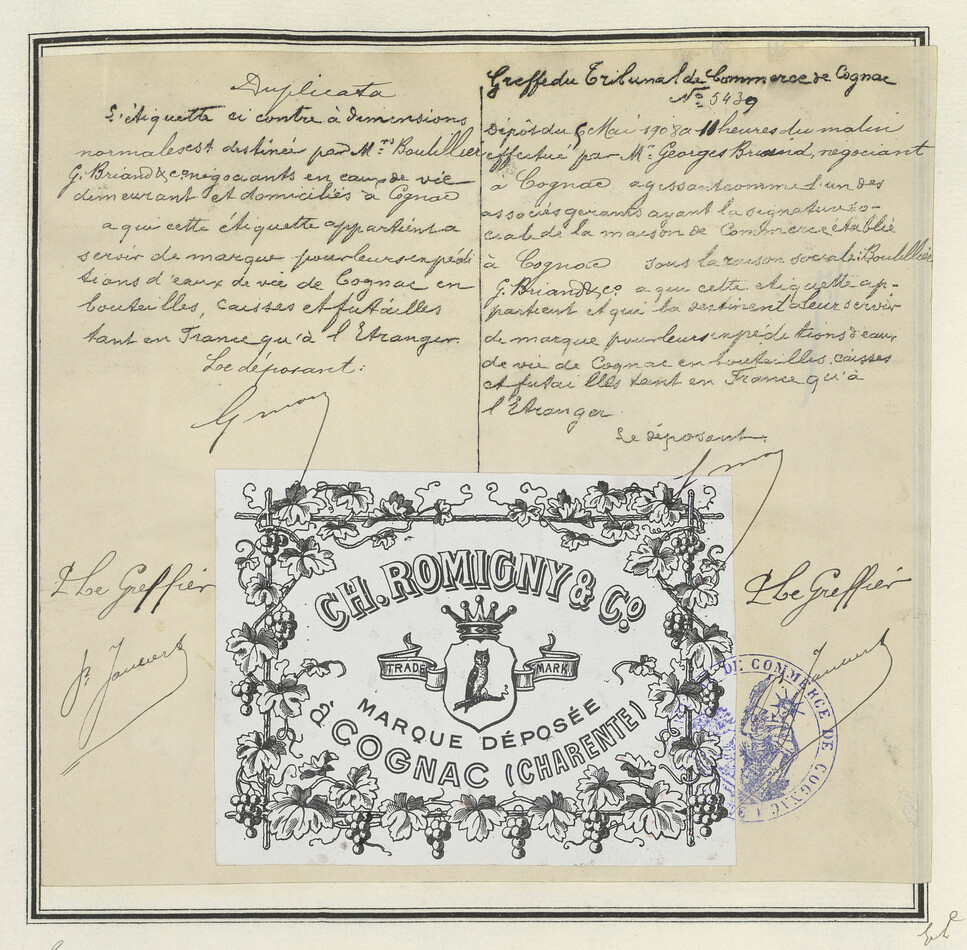 Duplicata
L'étiquette ci contre à dimensions
normales est destinée par Mrs Boutillier
G. Briand & Co négociants en eaux de vie
demeurant et domiciliés à Cognac
a qui cette étiquette appartient a
servir de marque pour leurs expédi
tions d'eaux de vie de Cognac en
bouteilles, caisses et futailles
tant en France qu'à l'Etranger.
Le déposant:
Greffe du Tribunal de Commerce de Cognac
No 5439
Dépôt du 5 Mai 1908 a 11 heures du matin
effectué par Mr Georges Briand, négociant
à Cognac agissant comme l'un des
associés gerants ayant la signature so-
ciale de la maison de Commerce établie
à Cognac sous la raison sociale: Boutillier
G. Briand & Co a qui cette etiquette ap-
partient et qui la destinent a leur servir
de marque pour leurs expéditions d'eaux
de vie de Cognac en bouteilles, caisses
et futailles tant en France qu'à
l'Etranger.
Le déposant.
P Le Greffier
P Le Greffier
CH. ROMIGNY & Co
TRADE MARK
MARQUE DÉPOSÉE
à COGNAC (CHARENTE)
DE COMMERCE DE COGNAC